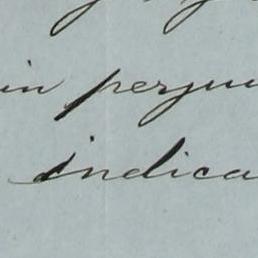 in perju
indica